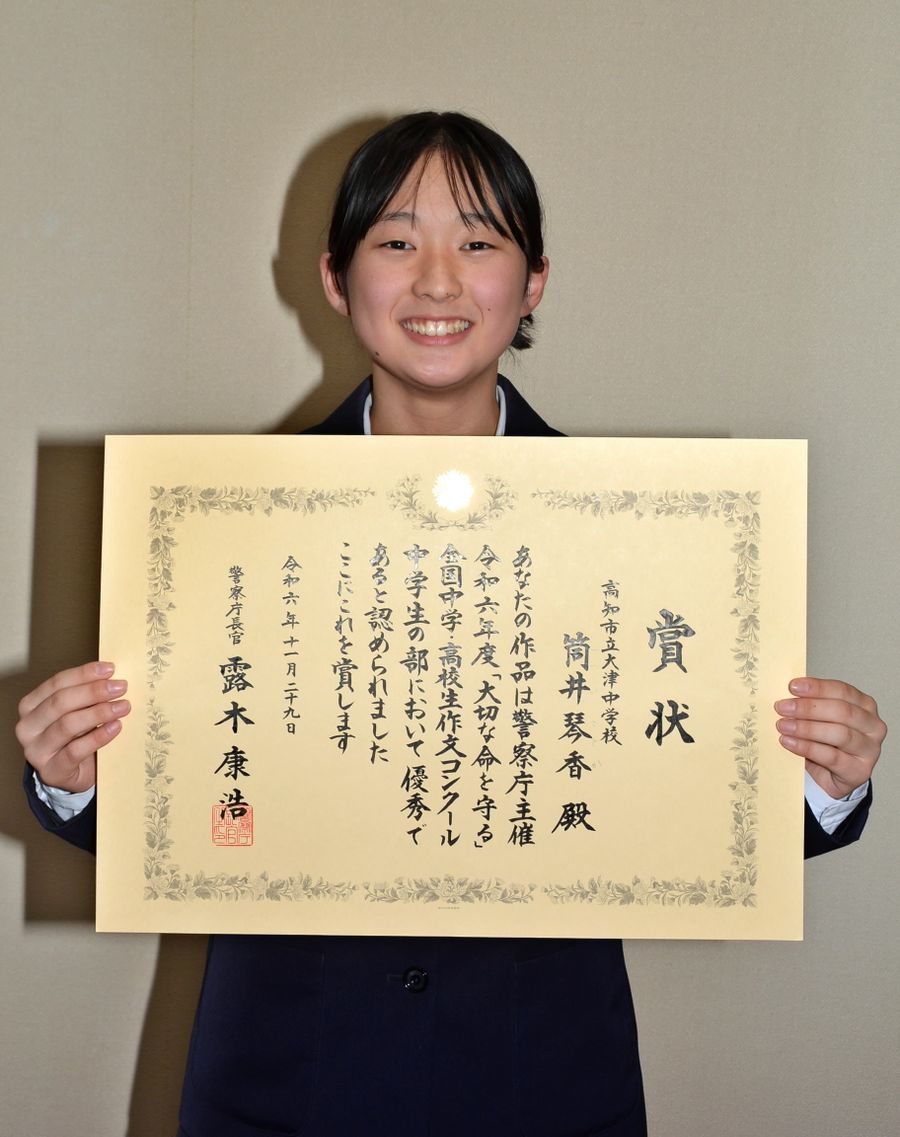 賞状
高知市立大津中学校
筒井琴香 殿
あなたの作品は警察庁主催
令和六年度「大切な命を守る」
全国中学・高校生作文コンクール
中学生の部において優秀で
あると認められました
ここにこれを賞します
令和六年十一月二十九日
警察庁長官 露木康浩